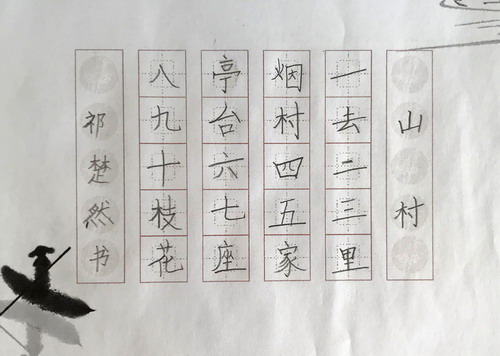 山村
一去二三里
烟村四五家
亭台六七座
八九十枝花
祁楚然书